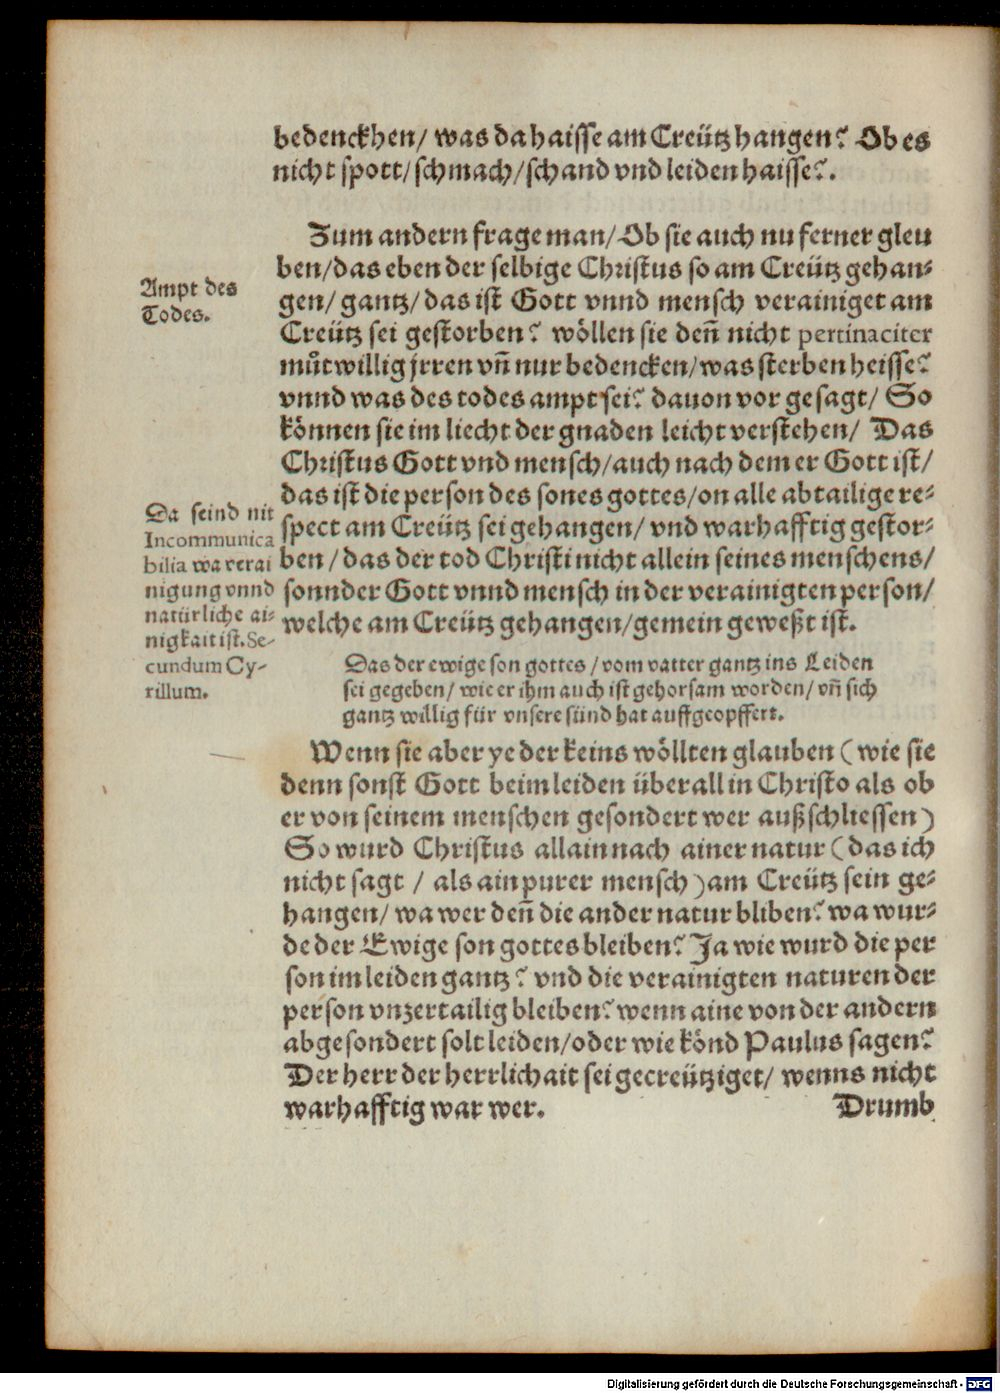 bedenckhen/ was da haisse am Creütz hangen? Ob es
nicht spott/ schmach/ schand vnd leiden haisse?.
Zum andern frage man/ Ob sie auch nu ferner gleu
ben/ das eben der selbige Christus so am Creütz gehan⸗
gen/ gantz/ das ist Gott vnnd mensch verainiget am
Creütz sei gestorben? wöllen sie deñ nicht pertinaciter
můtwillig jrren vñ nur bedencken/ was sterben heisse?
vnnd was des todes ampt sei? dauon vor gesagt/ So
können sie im liecht der gnaden leicht verstehen/ Das
Christus Gott vnd mensch/ auch nach dem er Gott ist/
das ist die person des sones gottes/ on alle abtailige re⸗
spect am Creütz sei gehangen/ vnd warhafftig gestor⸗
ben/ das der tod Christi nicht allein seines menschens/
sonnder Gott vnnd mensch in der verainigten person/
welche am Creütz gehangen/ gemein geweßt ist.
Ampt des
Todes.
Da seind nit
Incommunica
bilia wa verai
nigung vnnd
natürliche ai⸗
nigkait ist. Se-
cundum Cy-
rillum.
Das der ewige son gottes/ vom vatter gantz ins Leiden
sei gegeben/ wie er ihm auch ist gehorsam worden/ vñ sich
gantz willig für vnsere sünd hat auffgeopffert.
Wenn sie aber ye der keins wöllten glauben (wie sie
denn sonst Gott beim leiden überall in Christo als ob
er von seinem menschen gesondert wer außschliessen)
So wurd Christus allain nach ainer natur (das ich
nicht sagt / als ain purer mensch) am Creütz sein ge⸗
hangen/ wa wer deñ die ander natur bliben? wa wur⸗
de der Ewige son gottes bleiben? Ja wie wurd die per
son im leiden gantz? vnd die verainigten naturen der
person vnzertailig bleiben? wenn aine von der andern
abgesondert solt leiden/ oder wie könd Paulus sagen?
Der herr der herrlichait sei gecreütziget/ wenns nicht
warhafftig war wer. Drumb
Digitalisierung gefördert durch die Deutsche Forschungsgemeinschaft - DFG